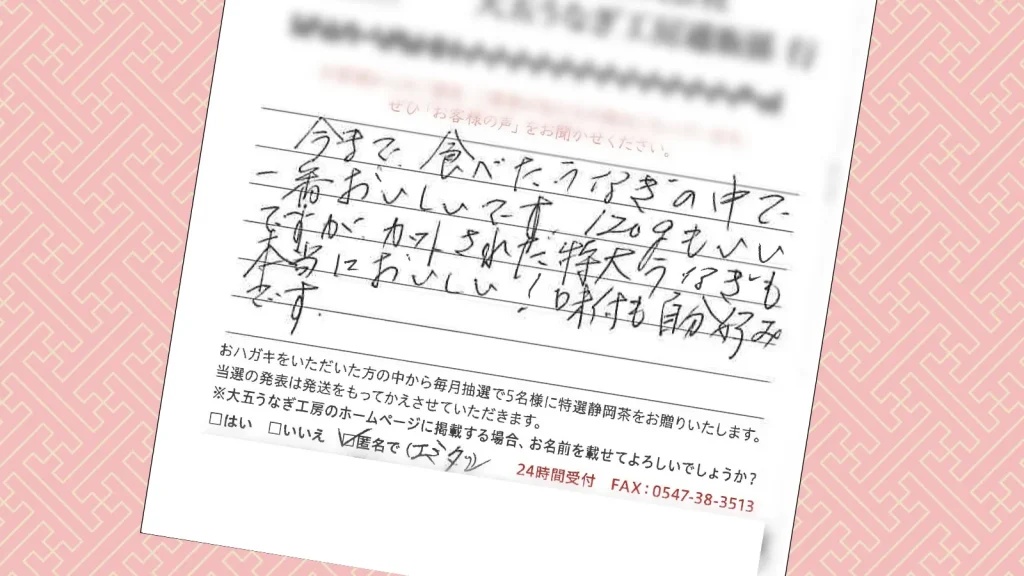 大五うなぎ工房通販係 行
ぜひ「お客様の声」をお聞かせください。
今まで 食べたうなぎの中で
一番おいしいです。120gもいい
ですが、カットされた特大うなぎも
本当においしい!味付も自分好み
です.
おハガキをいただいた方の中から毎月抽選で5名様に特選静岡茶をお贈りいたします。
当選の発表は発送をもってかえさせていただきます。
※大五うなぎ工房のホームページに掲載する場合、お名前を載せてよろしいでしょうか?
□はい □いいえ ☑匿名で(エミタン
24時間受付 FAX:0547-38-3513